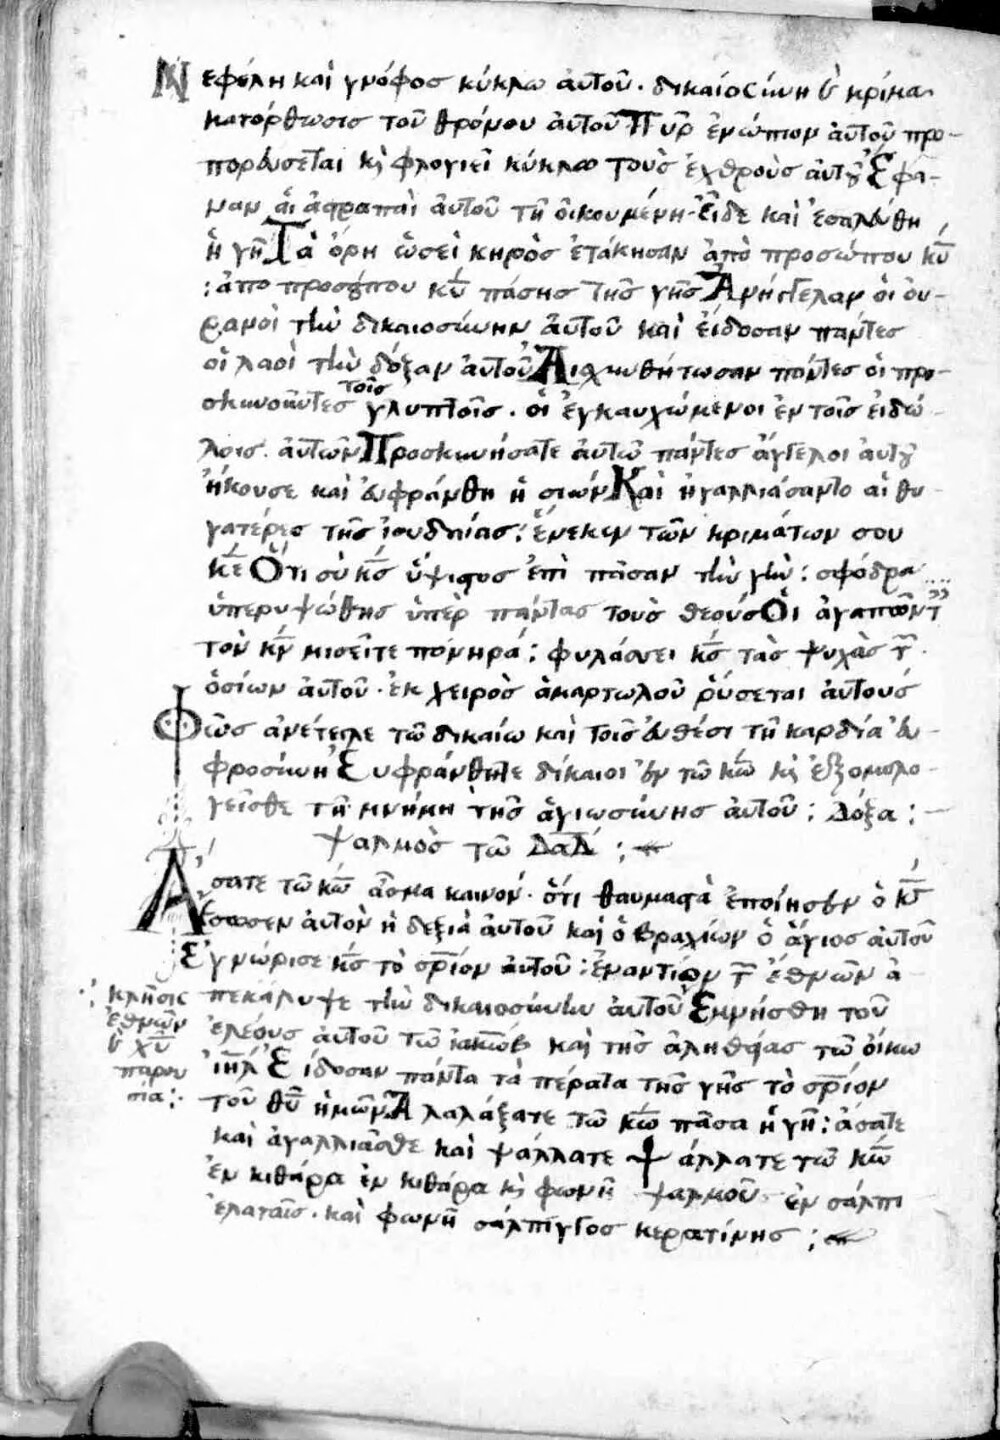 Νεφέλη καὶ γνόφος κύκλω ἀυτοῦ · δικαιοσύνη ϗ κρίμα
κατόρθωσις τοῦ θρόνου ἀυτοῦ Πῦρ ἐνώπιον ἀυτοῦ προ-
πορεύσεται ϗ φλογιεῖ κύκλω τοὺς ἐχθροὺς ἀυτοῦ Ἔφα-
ναν ἁι ἀστραπαὶ ἀυτοῦ τῆ ὀικουμένη · Εἶδε καὶ ἐσαλεύθη
ἡ γῆ Τὰ ὄρη ὡσεὶ κηρὸς ἐτάκησαν ἀπὸ προσώπου κ͞υ
: ἀπο προσώπου κ͞υ πάσης τῆς γῆς Ἀνήγγειλαν ὁι ὀυ-
ρανοὶ τὴν δικαιοσύνην ἀυτοῦ καὶ ἐίδοσαν πάντες
οἱ λαοὶ τὴν δόξαν ἀυτοῦ Ἀισχυνθήτωσαν πάντες ὁι προ-
σκυνοῦντες τοῖς γλυπτοῖς · ὁι ἐγκαυχώμενοι ἐν τοῖς ἐιδώ-
λοις ἀυτῶν Προσκυνήσατε ἀυτῶ πάντες ἄγγελοι ἀυτοῦ
ἤκουσε καὶ ἐυφράνθη ἡ σιών Καὶ ἠγαλλιάσαντο αἱ θυ-
γατέρες τῆς ἰουδαίας : ἕνεκεν τῶν κριμάτων σου
κ͞ε Ὅτι σὺ κ͞ς ὕψιστος ἐπὶ πᾶσαν τὴν γῆν : σφόδρα
ὑπερυψώθης ὑπὲρ πάντας τοὺς θεούς Ὁι ἀγαπῶντ
τὸν κ͞ν μισεῖτε πονηρά : φυλάσσει κ͞ς τὰς ψυχὰς τ͞
ὁσίων ἀυτοῦ · ἐκ χειρὸς ἁμαρτωλοῦ ῥύσεται ἀυτούς
Φῶς ἀνέτειλε τῶ δικαίω καὶ τοῖς ἐυθέσι τῆ καρδία ἐυ-
φροσύνη Ἐυφράνθητε δίκαιοι ἐν τῶ κ͞ω ϗ ἐξομολο-
γεῖσθε τῆ μνήμη τῆς ἁγιωσύνης ἀυτοῦ : Δόξα :
ψαλμὸς τῶ Δα͞δ :
Ἄσατε τῶ κ͞ω ἆσμα καινόν · ὅτι θαυμαστὰ ἐποίησεν ὁ κ͞ς
Ἔσωσεν ἀυτὸν ἡ δεξιὰ ἀυτοῦ καὶ ὁ βραχίων ὁ ἅγιος ἀυτοῦ
Ἐγνώρισε κ͞ς τὸ σ͞ριον ἀυτοῦ : ἐναντίον τ͞ ἐθνῶν ἀ-
πεκάλυψε τὴν δικαιοσύνην ἀυτοῦ Ἐμνήσθη τοῦ
ἐλέους ἀυτοῦ τῶ ἰακώβ καὶ τῆς ἀληθείας τῶ ὄικω
ἰ͞ηλ Ἐίδοσαν πάντα τὰ πέρατα τῆς γῆς τὸ σ͞ριον
τοῦ θ͞υ ἡμῶν Ἀλαλάξατε τῶ κ͞ω πᾶσα ἡ γῆ : ἄσατε
καὶ ἀγαλλιᾶσθε καὶ ψάλλατε Ψάλλατε τῶ κ͞ω
ἐν κιθάρα ἐν κιθάρα ϗ φωνῆ ψαλμοῦ ἐν σάλπι
ἐλαταῖς · καὶ φωνῆ σάλπιγγος κερατίνης :
κλῆσις
ἐθνῶν
ϗ χ͞υ
παρου
σία :